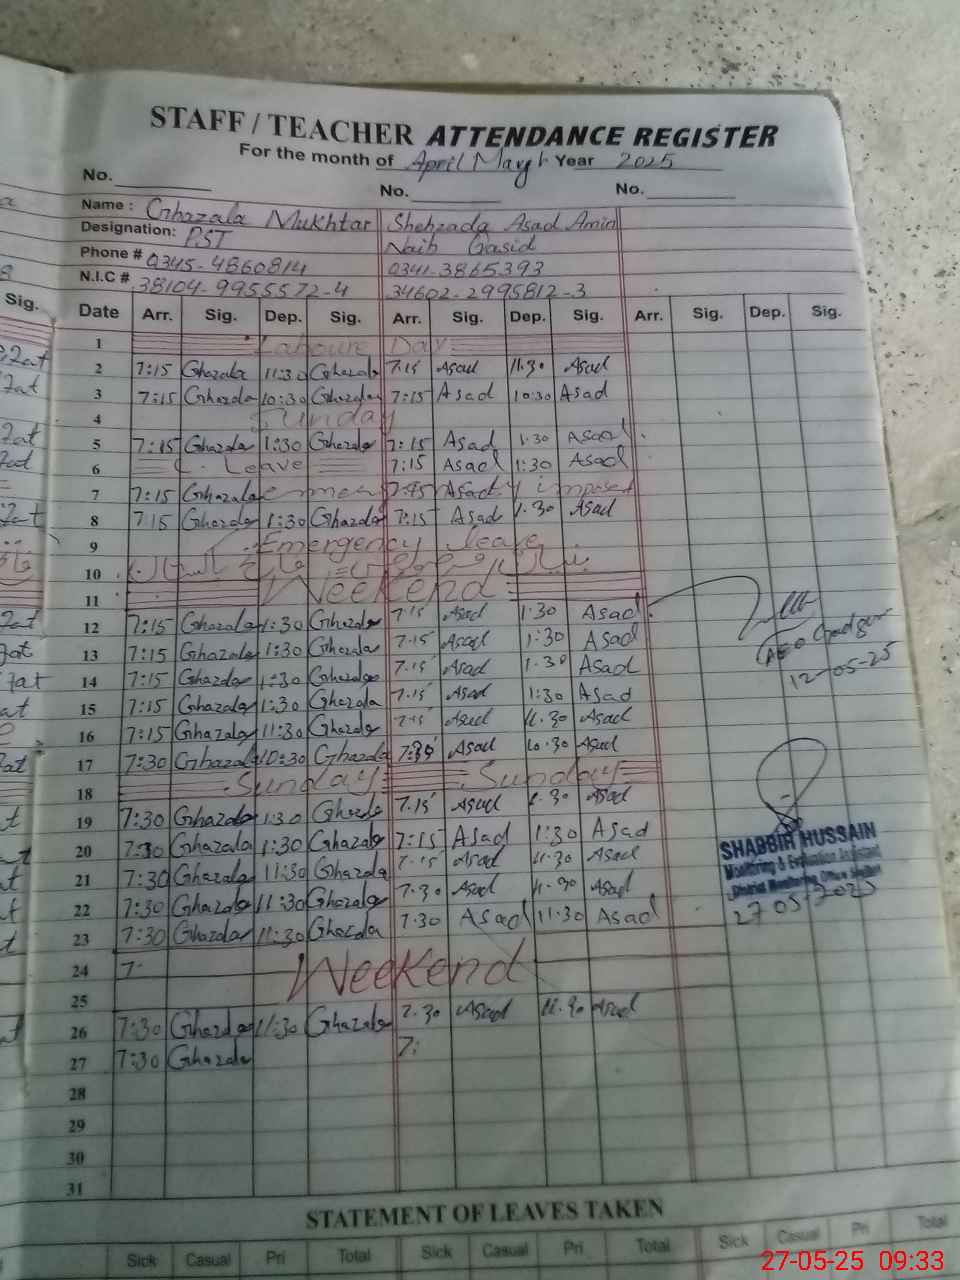 STAFF / TEACHER ATTENDANCE REGISTER
For the month of April May Year 2025
No. No. No.
Name : Ghazala Mukhtar Shehzada Asad Amin
Designation: PST Naib Qasid
Phone # 0345-4860814 0341-3865393
N.I.C # 38104-9955572-4 34602-2995812-3
Sig. Date Arr. Sig. Dep. Sig. Arr. Sig. Dep. Sig. Arr. Sig. Dep. Sig.
1 Labour Day
2 7:15 Ghazala 11:30 Ghazala 7.15 Asad 11.30 Asad
3 7:15 Ghazala 10:30 Ghazala 7:15 Asad 10:30 Asad
4 Sunday
5 7:15 Ghazala 1:30 Ghazala 7:15 Asad 1.30 Asad
6 Leave 7:15 Asad 1:30 Asad
7 7:15 Ghazala Asad
8 7:15 Ghazala 1:30 Ghazala 7:15 Asad 1.30 Asad
9 Emergency leave
10
11 Weekend
12 7:15 Ghazala 1:30 Ghazala 7.15 Asad 1:30 Asad
13 7:15 Ghazala 1:30 Ghazala 7.15 Asad 1:30 Asad
14 7:15 Ghazala 1:30 Ghazala 7.15 Asad 1.30 Asad
15 7:15 Ghazala 1:30 Ghazala 7.15 Asad 1:30 Asad
16 7:15 Ghazala 11:30 Ghazala 7.15 Asad 11.30 Asad
17 7:30 Ghazala 10:30 Ghazala 7:30 Asad 10.30 Asad
18 Sunday Sunday
19 7:30 Ghazala 1:30 Ghazala 7.15 Asad 1.30 Asad
20 7:30 Ghazala 1:30 Ghazala 7:15 Asad 1:30 Asad
21 7:30 Ghazala 11:30 Ghazala 7.15 Asad 11.30 Asad
22 7:30 Ghazala 11:30 Ghazala 7.30 Asad 11.30 Asad
23 7:30 Ghazala 11:30 Ghazala 7.30 Asad 11:30 Asad
24 7: Weekend
25
26 7:30 Ghazala 11:30 Ghazala 7.30 Asad 11.30 Asad
27 7:30 Ghazala 7:
28
29
30
31
AEO
12-05-25
SHABBIR HUSSAIN
Monitoring & Evaluation Assistant
District Monitoring Office
27 05 2025
STATEMENT OF LEAVES TAKEN
Sick Casual Pri Total Sick Casual Pri Total Sick Casual Pri Total
27-05-25 09:33